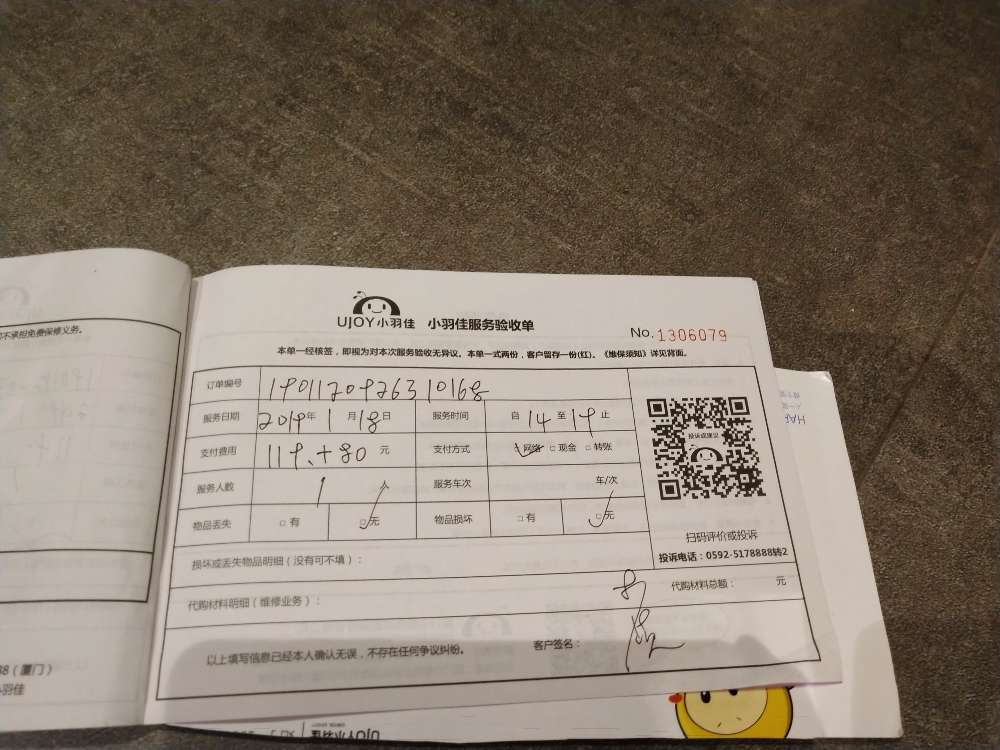 UJOY小羽佳 小羽佳服务验收单
No. 1306079
本单一经核签，即视为对本次服务验收无异议。本单一式两份，客户留存一份(红)。《维保须知》详见背面。
订单编号 1901120926310168
服务日期 2019年 1月18日 服务时间 自 14 至 19 止
支付费用 119.+80 元 支付方式 □网络 □现金 □转账
服务人数 1 人 服务车次 车/次
物品丢失 □有 □无 物品损坏 □有 □无
投诉或建议
扫码评价或投诉
投诉电话：0592-5178888转2
损坏或丢失物品明细（没有可不填）：
代购材料明细（维修业务）： 代购材料总额： 元
以上填写信息已经本人确认无误，不存在任何争议纠纷。 客户签名：
不承担免费保修义务。
38（厦门）
小羽佳
UJOY小羽佳